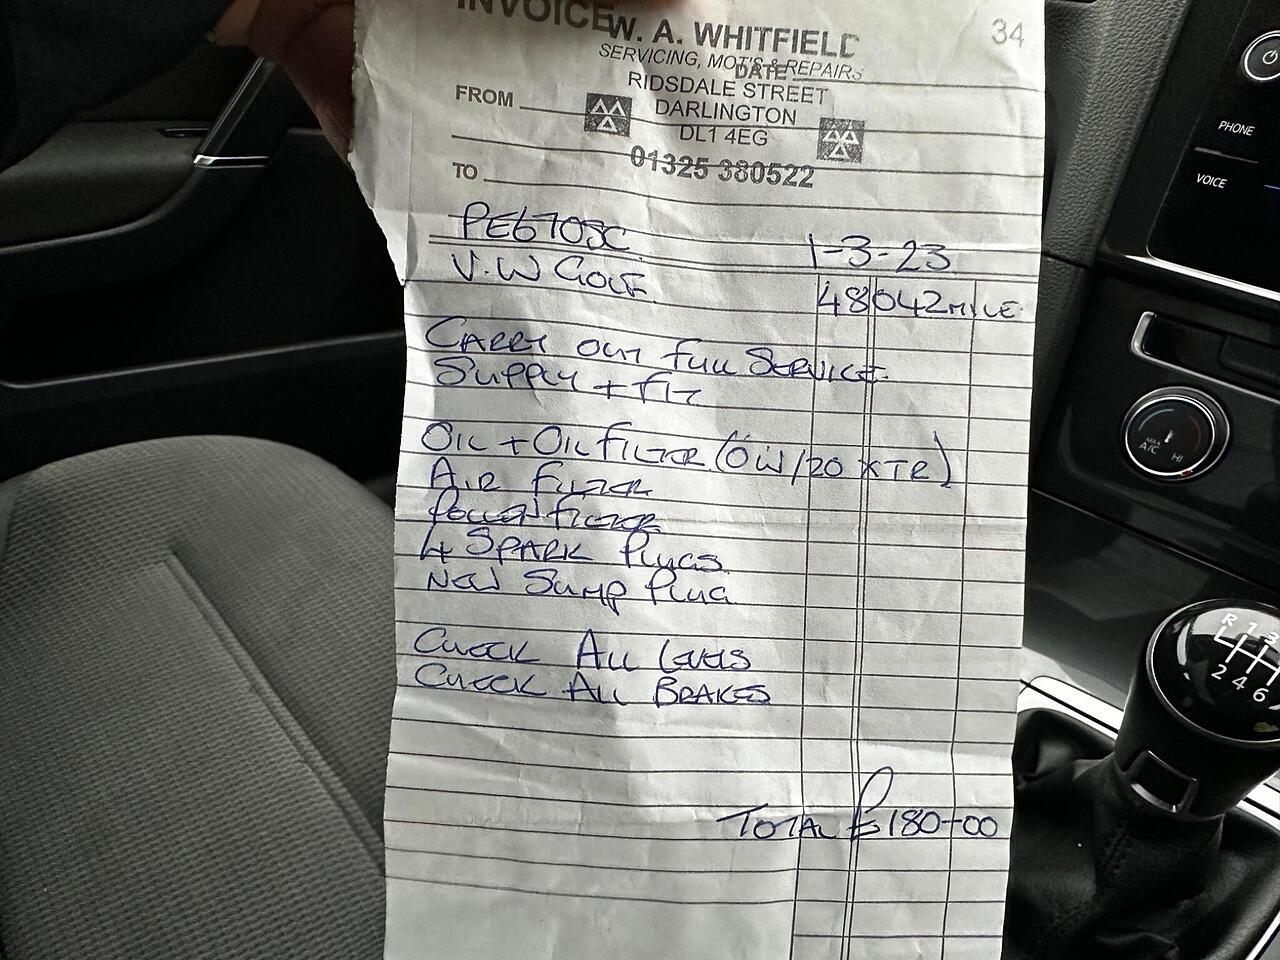 34
INVOICE
W. A. WHITFIELD
SERVICING, MOT'S & REPAIRS
DATE
RIDSDALE STREET
FROM
DARLINGTON
DL1 4EG
01325 380522
TO
PE67OSC
1-3-23
V.W GOLF
48042 MILE
CARRY OUT FULL SERVICE
SUPPLY + FIT
OIL + OIL FILTER (0W/20 XTR)
AIR FILTER
POLLEN FILTER
4 SPARK PLUGS
NEW SUMP PLUG
CHECK ALL LEVELS
CHECK ALL BRAKES
TOTAL £180-00
PHONE
VOICE
MAX A/C
HI
R 1 3
2 4 6